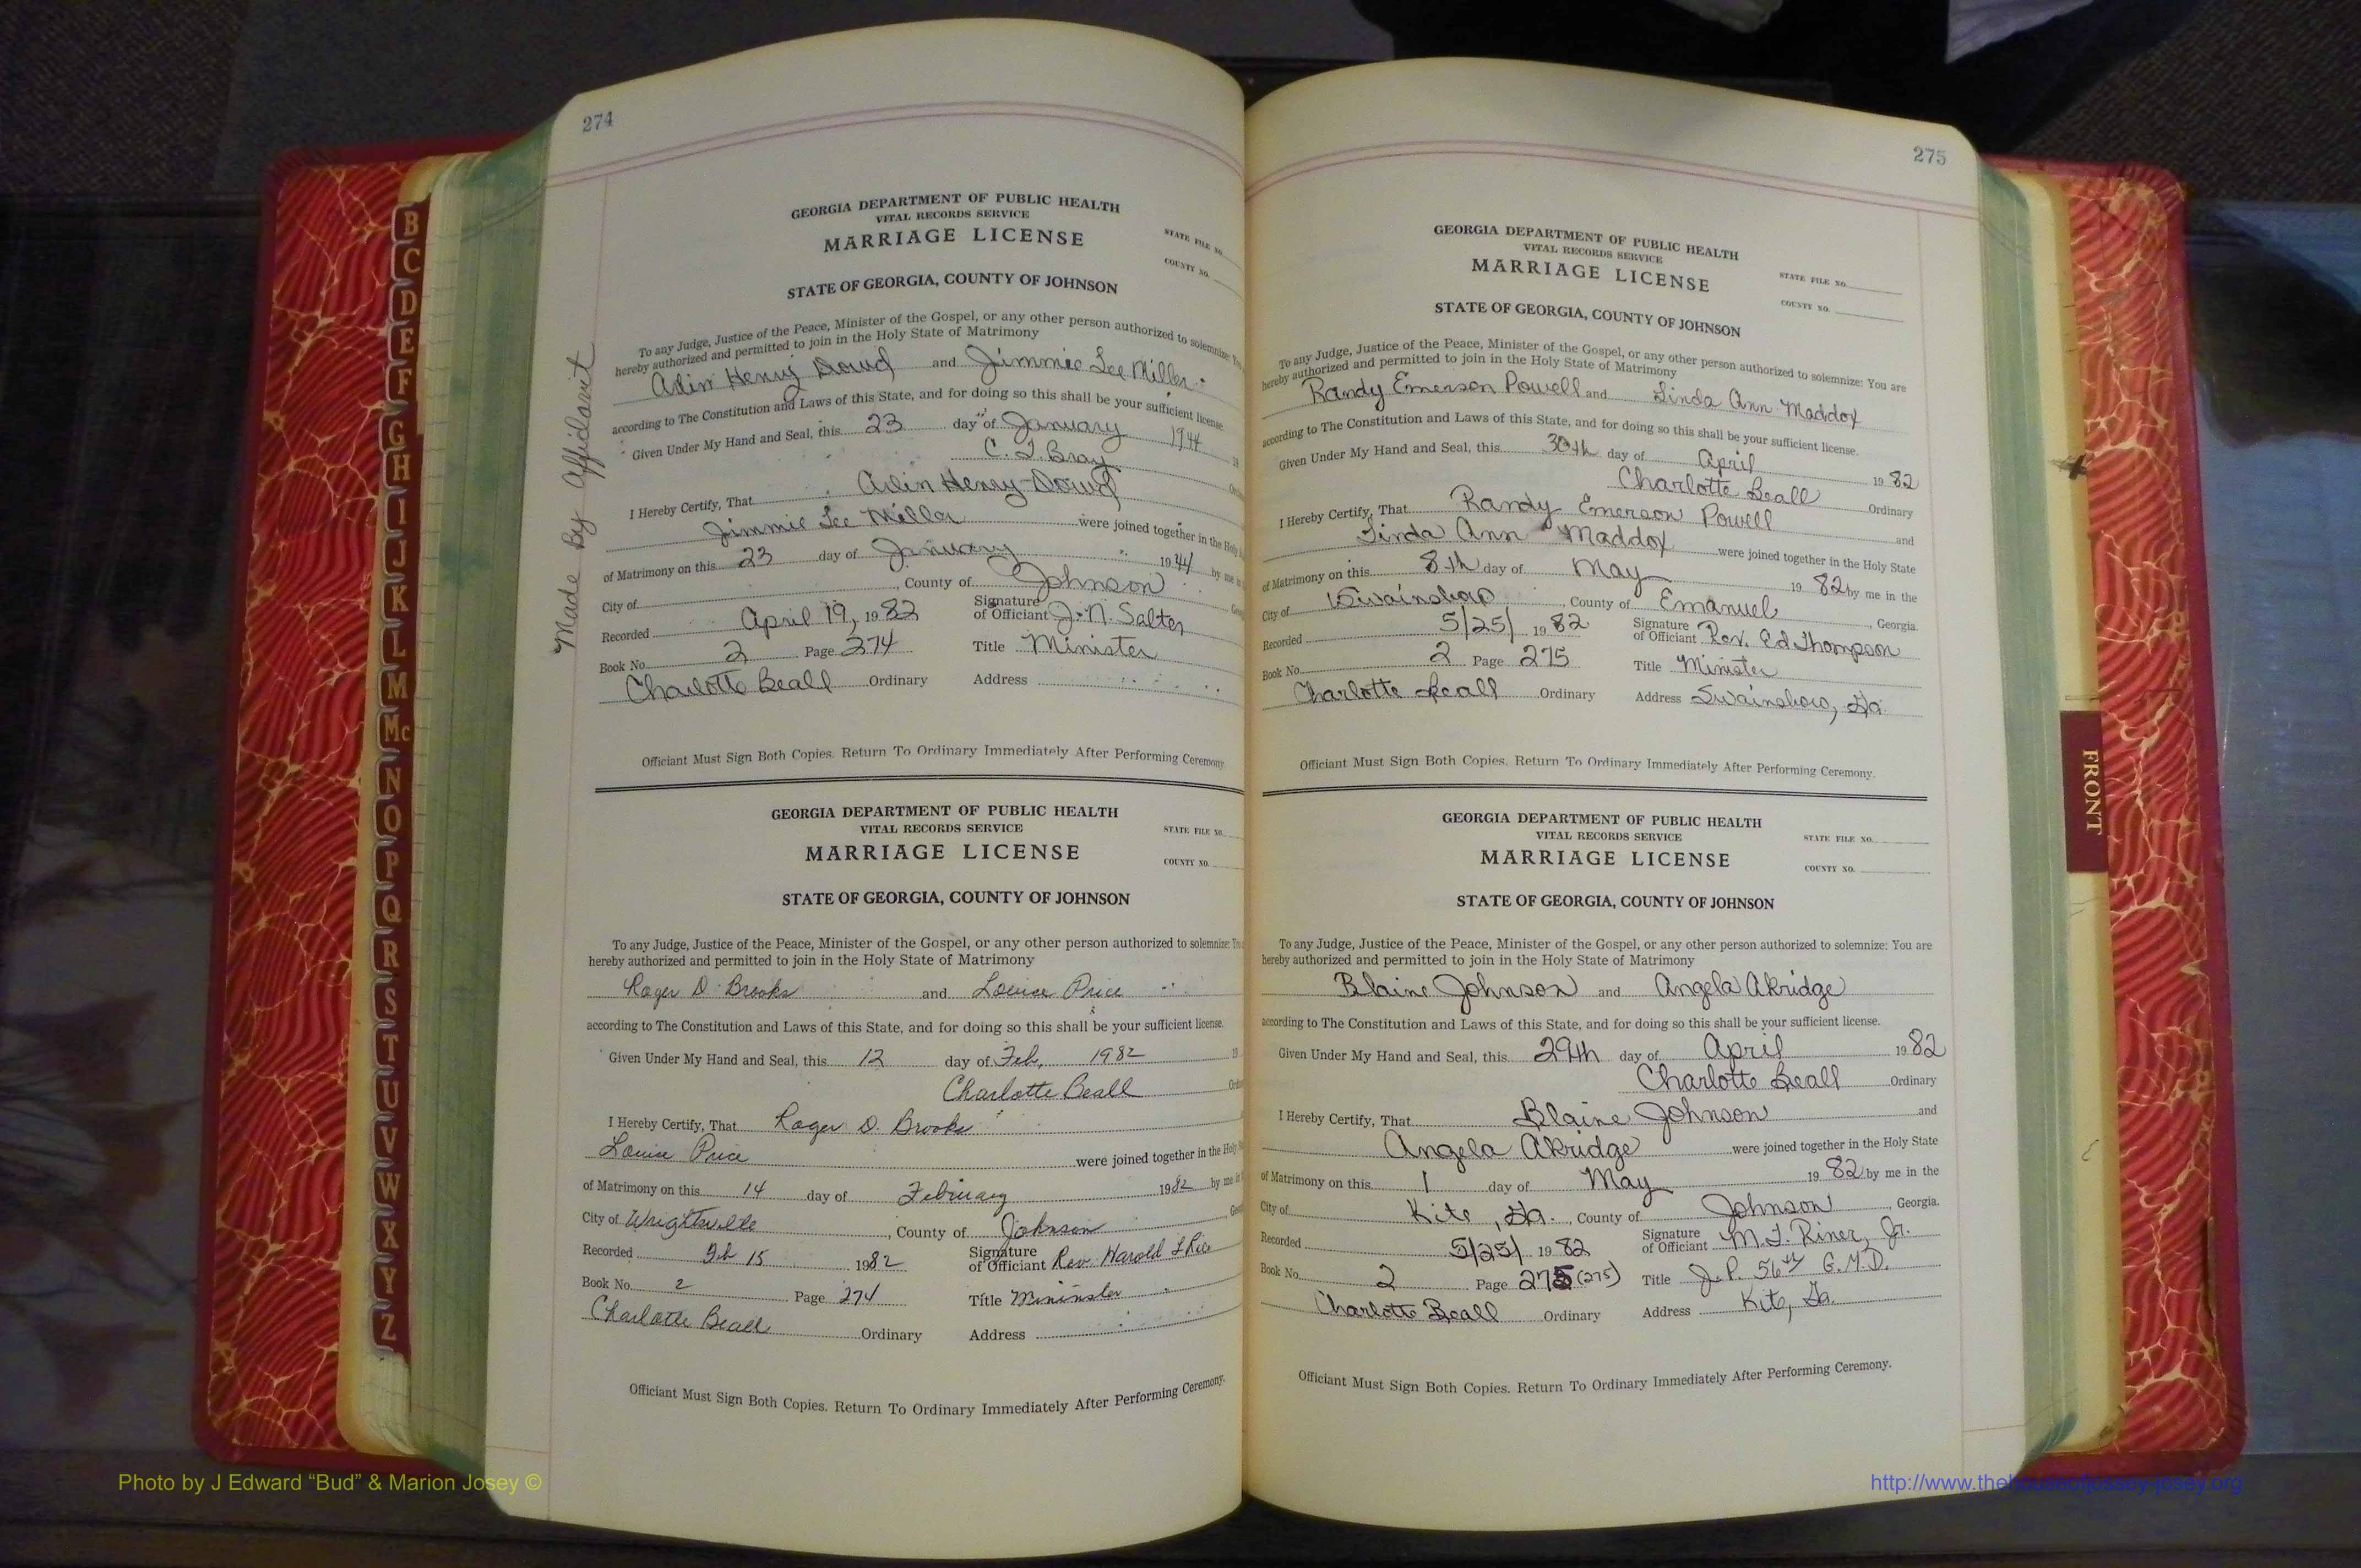 274
Made By Affidavit
GEORGIA DEPARTMENT OF PUBLIC HEALTH
VITAL RECORDS SERVICE
MARRIAGE LICENSE
STATE FILE NO.
COUNTY NO.
STATE OF GEORGIA, COUNTY OF JOHNSON
To any Judge, Justice of the Peace, Minister of the Gospel, or any other person authorized to solemnize:
hereby authorized and permitted to join in the Holy State of Matrimony
Henry Dowd and Jimmie Lee Miller
according to The Constitution and Laws of this State, and for doing so this shall be your sufficient license.
Given Under My Hand and Seal, this 23 day of January 1944
C. T. Bray
I Hereby Certify, That Henry Dowd
Jimmie Lee Miller were joined together in the
of Matrimony on this 23 day of January 1944 by me in
City of , County of Johnson
Recorded April 19, 1982 Signature of Officiant J. N. Salter
Book No. 2 Page 274 Title Minister
Charlotte Beall Ordinary Address
Officiant Must Sign Both Copies. Return To Ordinary Immediately After Performing Ceremony.
GEORGIA DEPARTMENT OF PUBLIC HEALTH
VITAL RECORDS SERVICE
MARRIAGE LICENSE
STATE FILE NO.
COUNTY NO.
STATE OF GEORGIA, COUNTY OF JOHNSON
To any Judge, Justice of the Peace, Minister of the Gospel, or any other person authorized to solemnize:
hereby authorized and permitted to join in the Holy State of Matrimony
Roger D. Brooks and Louise Price
according to The Constitution and Laws of this State, and for doing so this shall be your sufficient license.
Given Under My Hand and Seal, this 12 day of Feb, 1982
Charlotte Beall
I Hereby Certify, That Roger D. Brooks
Louise Price were joined together in the
of Matrimony on this 14 day of February 1982 by me
City of Wrightsville , County of Johnson
Recorded Feb 15 1982 Signature of Officiant Rev. Harold
Book No. 2 Page 274 Title Mininster
Charlotte Beall Ordinary Address
Officiant Must Sign Both Copies. Return To Ordinary Immediately After Performing Ceremony.
275
GEORGIA DEPARTMENT OF PUBLIC HEALTH
VITAL RECORDS SERVICE
MARRIAGE LICENSE
STATE FILE NO.
COUNTY NO.
STATE OF GEORGIA, COUNTY OF JOHNSON
To any Judge, Justice of the Peace, Minister of the Gospel, or any other person authorized to solemnize: You are
hereby authorized and permitted to join in the Holy State of Matrimony
Randy Emerson Powell and Linda Ann Maddox
according to The Constitution and Laws of this State, and for doing so this shall be your sufficient license.
Given Under My Hand and Seal, this 30th day of April 1982
Charlotte Beall Ordinary
I Hereby Certify, That Randy Emerson Powell and
Linda Ann Maddox were joined together in the Holy State
of Matrimony on this 8th day of May 1982 by me in the
City of Swainsboro , County of Emanuel , Georgia.
Recorded 5/25/ 1982 Signature of Officiant Rev. Ed Thompson
Book No. 2 Page 275 Title Minister
Charlotte Beall Ordinary Address Swainsboro, Ga.
Officiant Must Sign Both Copies. Return To Ordinary Immediately After Performing Ceremony.
GEORGIA DEPARTMENT OF PUBLIC HEALTH
VITAL RECORDS SERVICE
MARRIAGE LICENSE
STATE FILE NO.
COUNTY NO.
STATE OF GEORGIA, COUNTY OF JOHNSON
To any Judge, Justice of the Peace, Minister of the Gospel, or any other person authorized to solemnize: You are
hereby authorized and permitted to join in the Holy State of Matrimony
Blaine Johnson and Angela Akridge
according to The Constitution and Laws of this State, and for doing so this shall be your sufficient license.
Given Under My Hand and Seal, this 29th day of April 1982
Charlotte Beall Ordinary
I Hereby Certify, That Blaine Johnson and
Angela Akridge were joined together in the Holy State
of Matrimony on this 1 day of May 1982 by me in the
City of Kite, Ga. , County of Johnson , Georgia.
Recorded 5/25/ 1982 Signature of Officiant M. T. Riner, Jr.
Book No. 2 Page 275 (275) Title J.P. 56th G.M.D.
Charlotte Beall Ordinary Address Kite, Ga.
Officiant Must Sign Both Copies. Return To Ordinary Immediately After Performing Ceremony.
B
C
D
E
F
G
H
I
J
K
L
M
Mc
N
O
P
Q
R
S
T
U
V
W
X
Y
Z
FRONT
Photo by J Edward “Bud” & Marion Josey ©
http://www.thehouseofjossey-josey.org